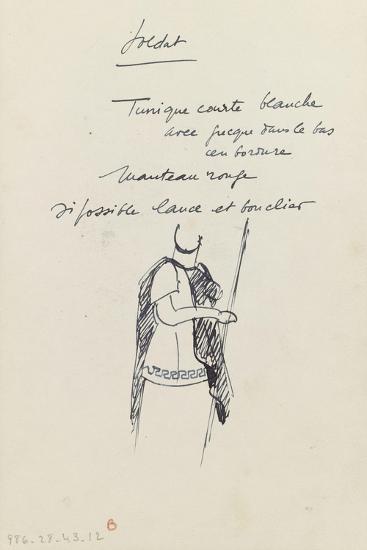 Soldat
Tunique courte blanche
avec grecque dans le bas
en bordure
Manteau rouge
si possible lance et bouclier
B
986-28-43-12